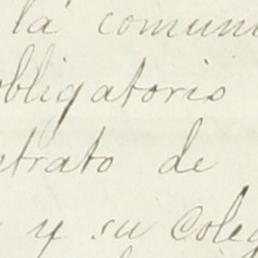 la comuni
obligatorio
strato de
y su Coleg